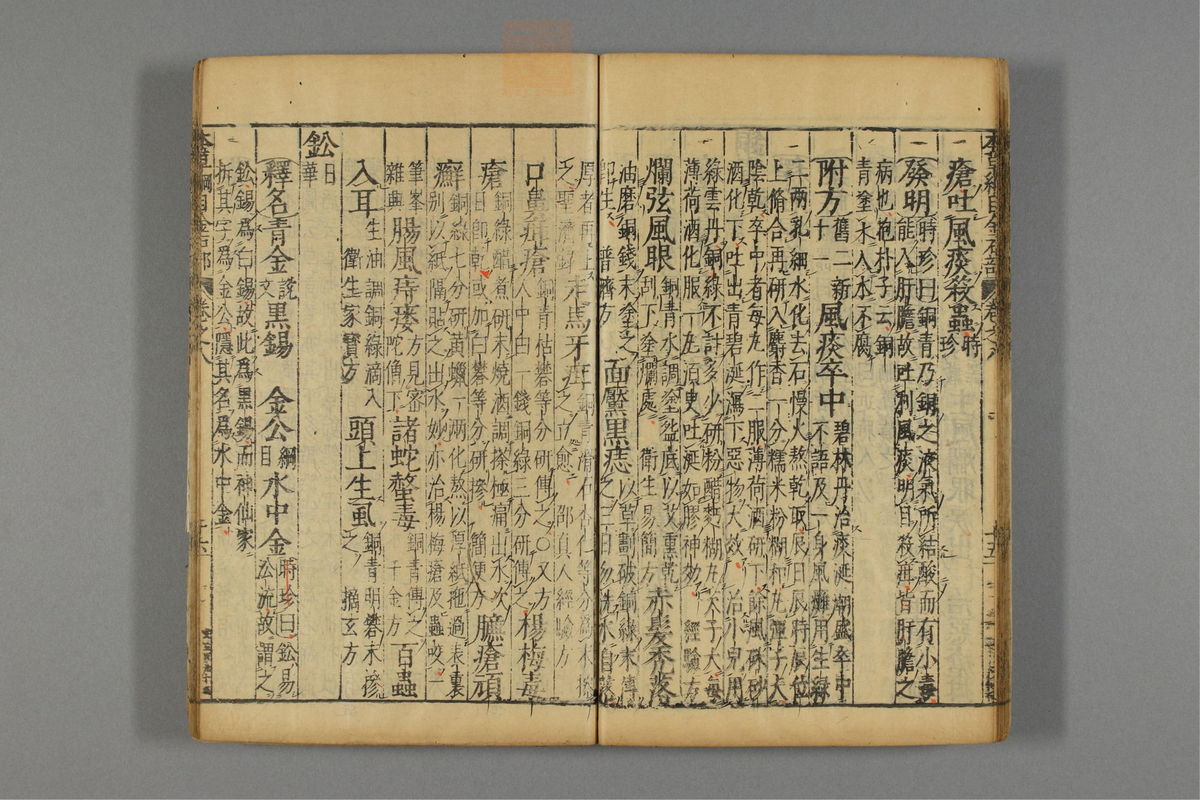 瘡吐風痰殺蟲時珍
發明時珍曰銅青乃銅之液氣所結酸而有小毒
能入肝膽故吐利風痰明目殺疳皆肝膽之
病也抱朴子云銅
青塗木入水不腐
附方舊二新十一風痰卒中碧林丹治痰涎潮盛卒中
不語及一身風癱用生綠
二兩乳細水化去石慢火熬乾取辰日辰時辰位
上修合再研入麝香一分糯米粉糊和丸彈子大
陰乾卒中者每丸作二服薄荷酒研下餘風硃砂
酒化下吐出青碧涎瀉下惡物大效治小兒用
綠雲丹銅綠不計多少研粉醋麪糊丸芡子大每
薄荷酒化服一丸須臾吐涎如膠神効經驗方
爛弦風眼銅青水調塗盌底以艾熏乾
刮下塗爛處衛生易簡方赤髮禿落
油磨銅錢末塗之
即生普濟方面黶黑痣以草劃破銅綠末傅
之三日勿洗水自落
厚者再上
之聖濟錄走馬牙疳銅青滑石杏仁等分爲末擦
之立愈邵真人經驗方
口鼻疳瘡銅青枯礬等分研傅之○又方
人中白一錢銅綠三分研傅之楊梅毒
瘡銅綠醋煮研末燒酒調搽極痛出水次
日即乾或加白礬等分研摻簡便方臁瘡頑
癬銅綠七分研黃蠟一兩化熬以厚紙拖過表裏
別以紙隔貼之出水妙亦治楊梅瘡及蟲咬
筆峯
雜興腸風痔瘻方見密
陀僧下諸蛇螫毒銅青傅之
千金方百蟲
入耳生油調銅綠滴入
衛生家寶方頭上生虱銅青明礬末摻
之摘玄方
鉛日華
釋名青金說文黑錫金公綱目水中金時珍曰鉛易
沿流故謂之
鉛錫爲白錫故此爲黑錫而神仙家
拆其字爲金公隱其名爲水中金